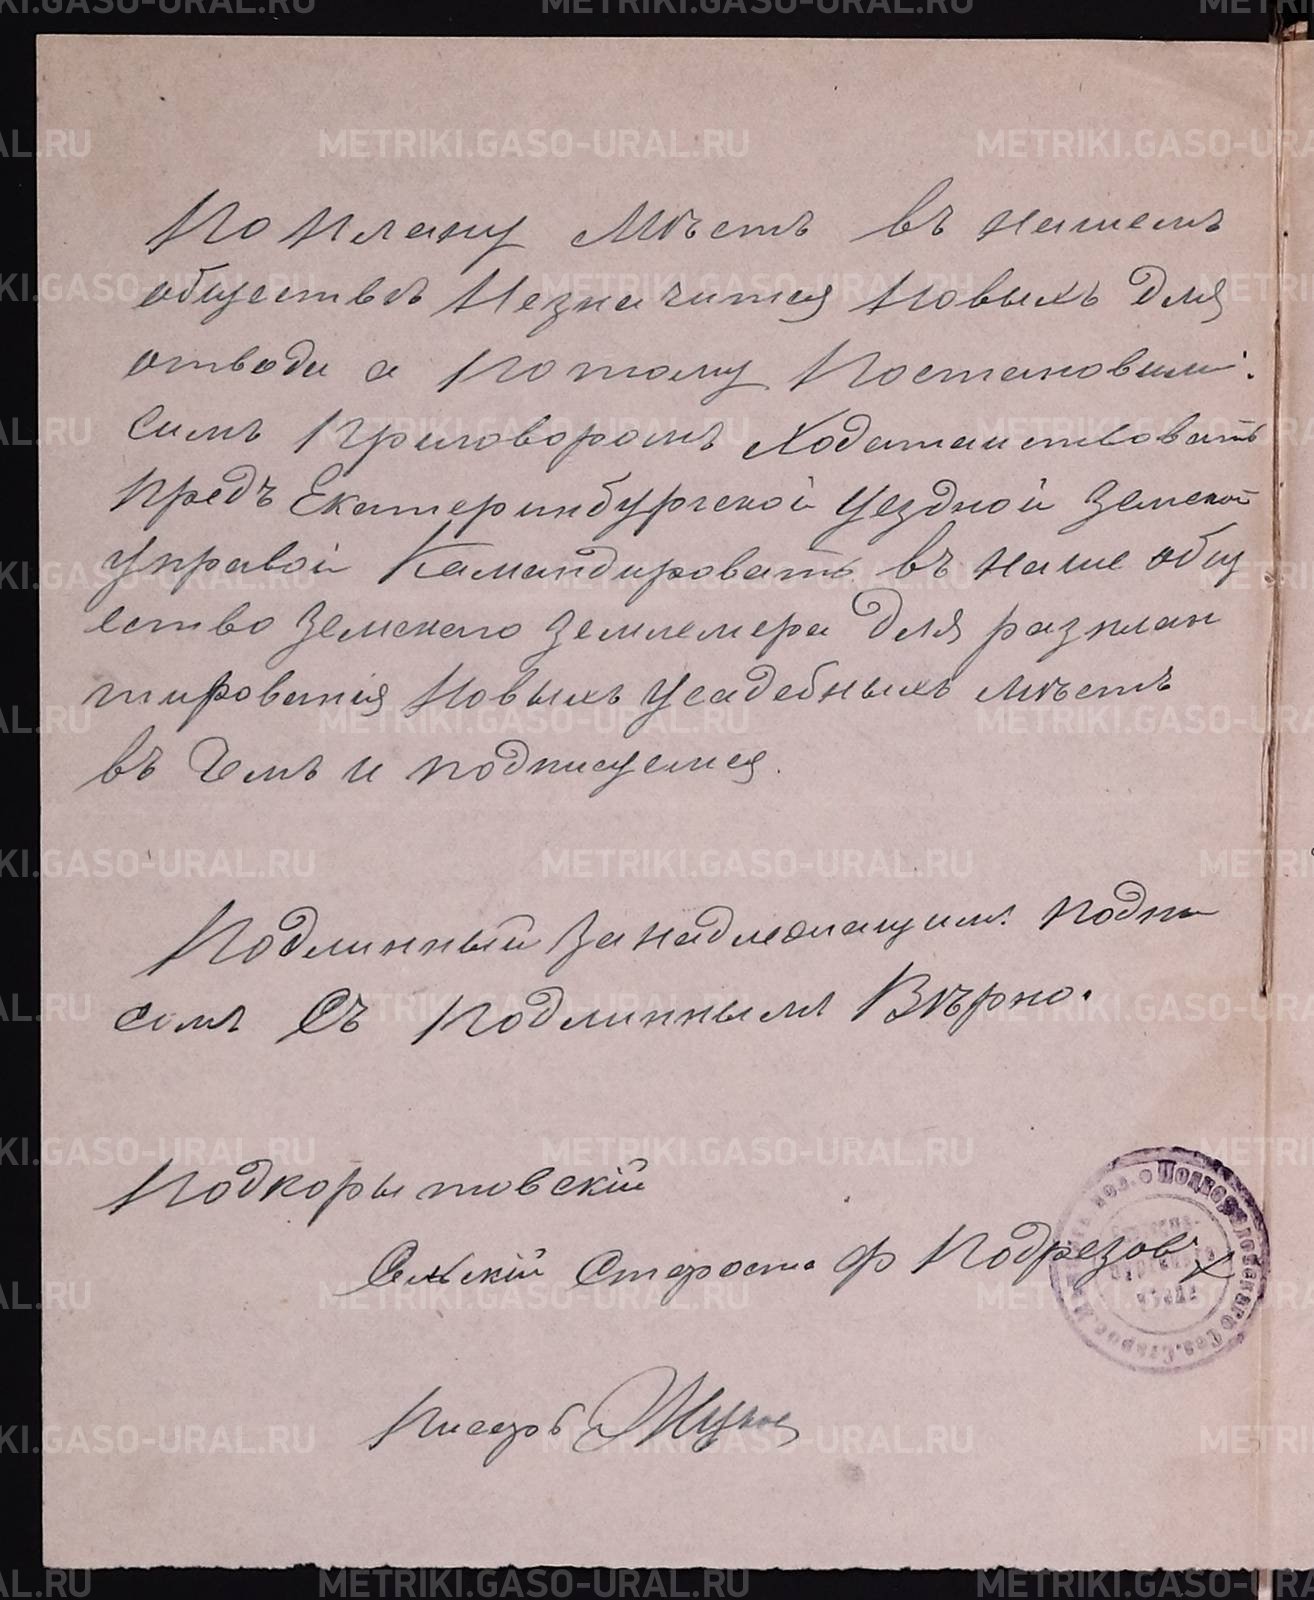 По плану мѣстъ въ нашемъ
обществѣ Незначится Новыхъ для
отвода а потому Постановили:
симъ Приговоромъ Ходатайствовать
предъ Екатеринбургской Уездной Земской
управой Камандировать въ наше общ
ество Земскаго Землемера для разплан
тированія Новыхъ усадебныхъ мѣстъ
въ чемъ и подписуемся.
Подлинный за надлежащимъ Подпи
сомъ Съ Подлиннымъ Вѣрно.
Подкорытовскій
Селскій Староста Ф Подрезовъ
Писарь
METRIKI.GASO-URAL.RU